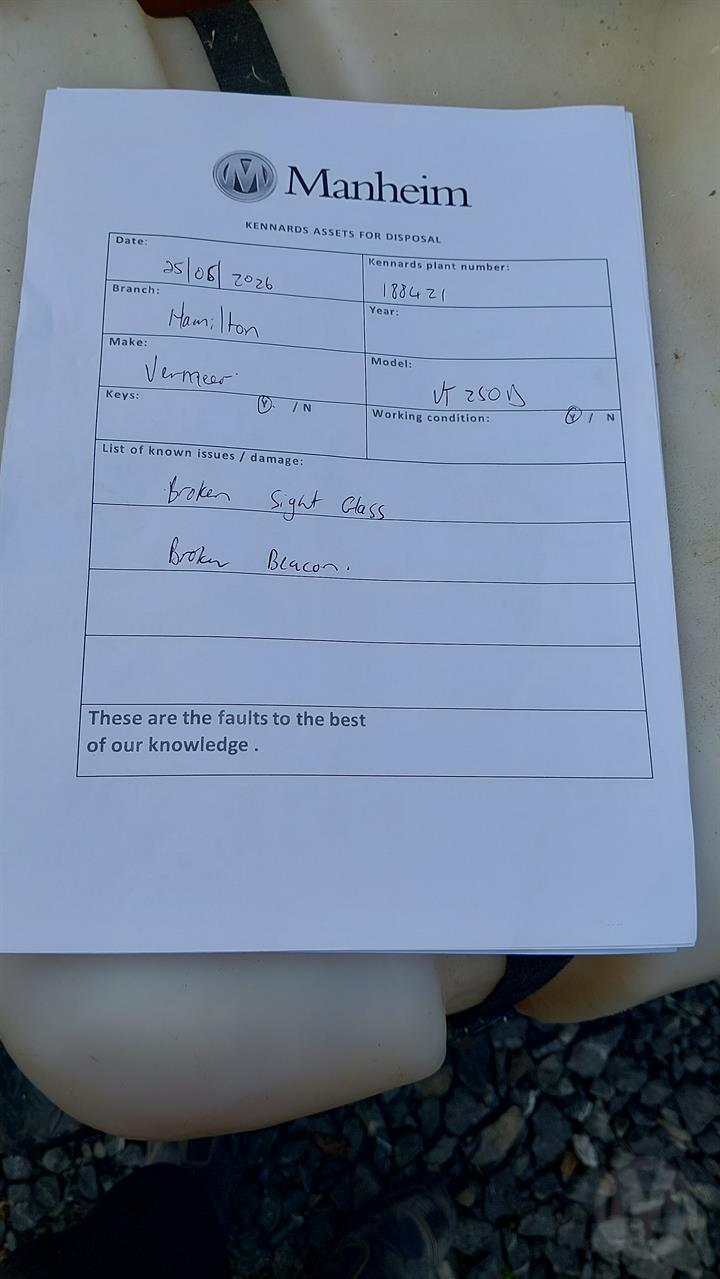 Manheim
KENNARDS ASSETS FOR DISPOSAL
Date: 25/05/2026
Kennards plant number: 188421
Branch: Hamilton
Year:
Make: Vermeer
Model: VT 250D
Keys: Y / N
Working condition: Y / N
List of known issues / damage:
Broken Sight Glass
Broken Beacon.
These are the faults to the best
of our knowledge .